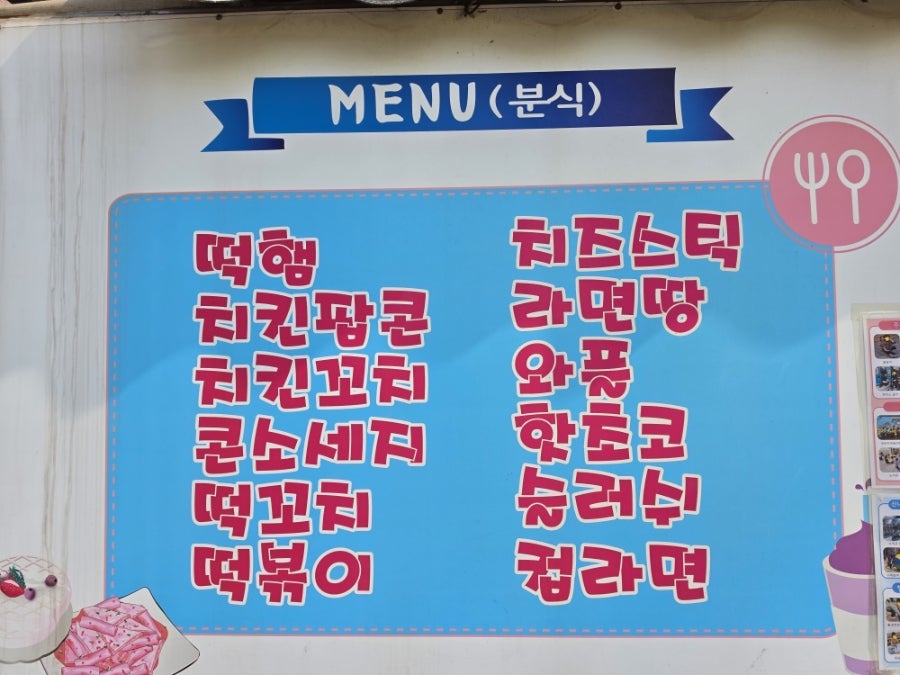 MENU (분식)
떡햄
치킨팝콘
치킨꼬치
콘소세지
떡꼬치
떡볶이
치즈스틱
라면땅
와플
핫초코
슬러쉬
컵라면